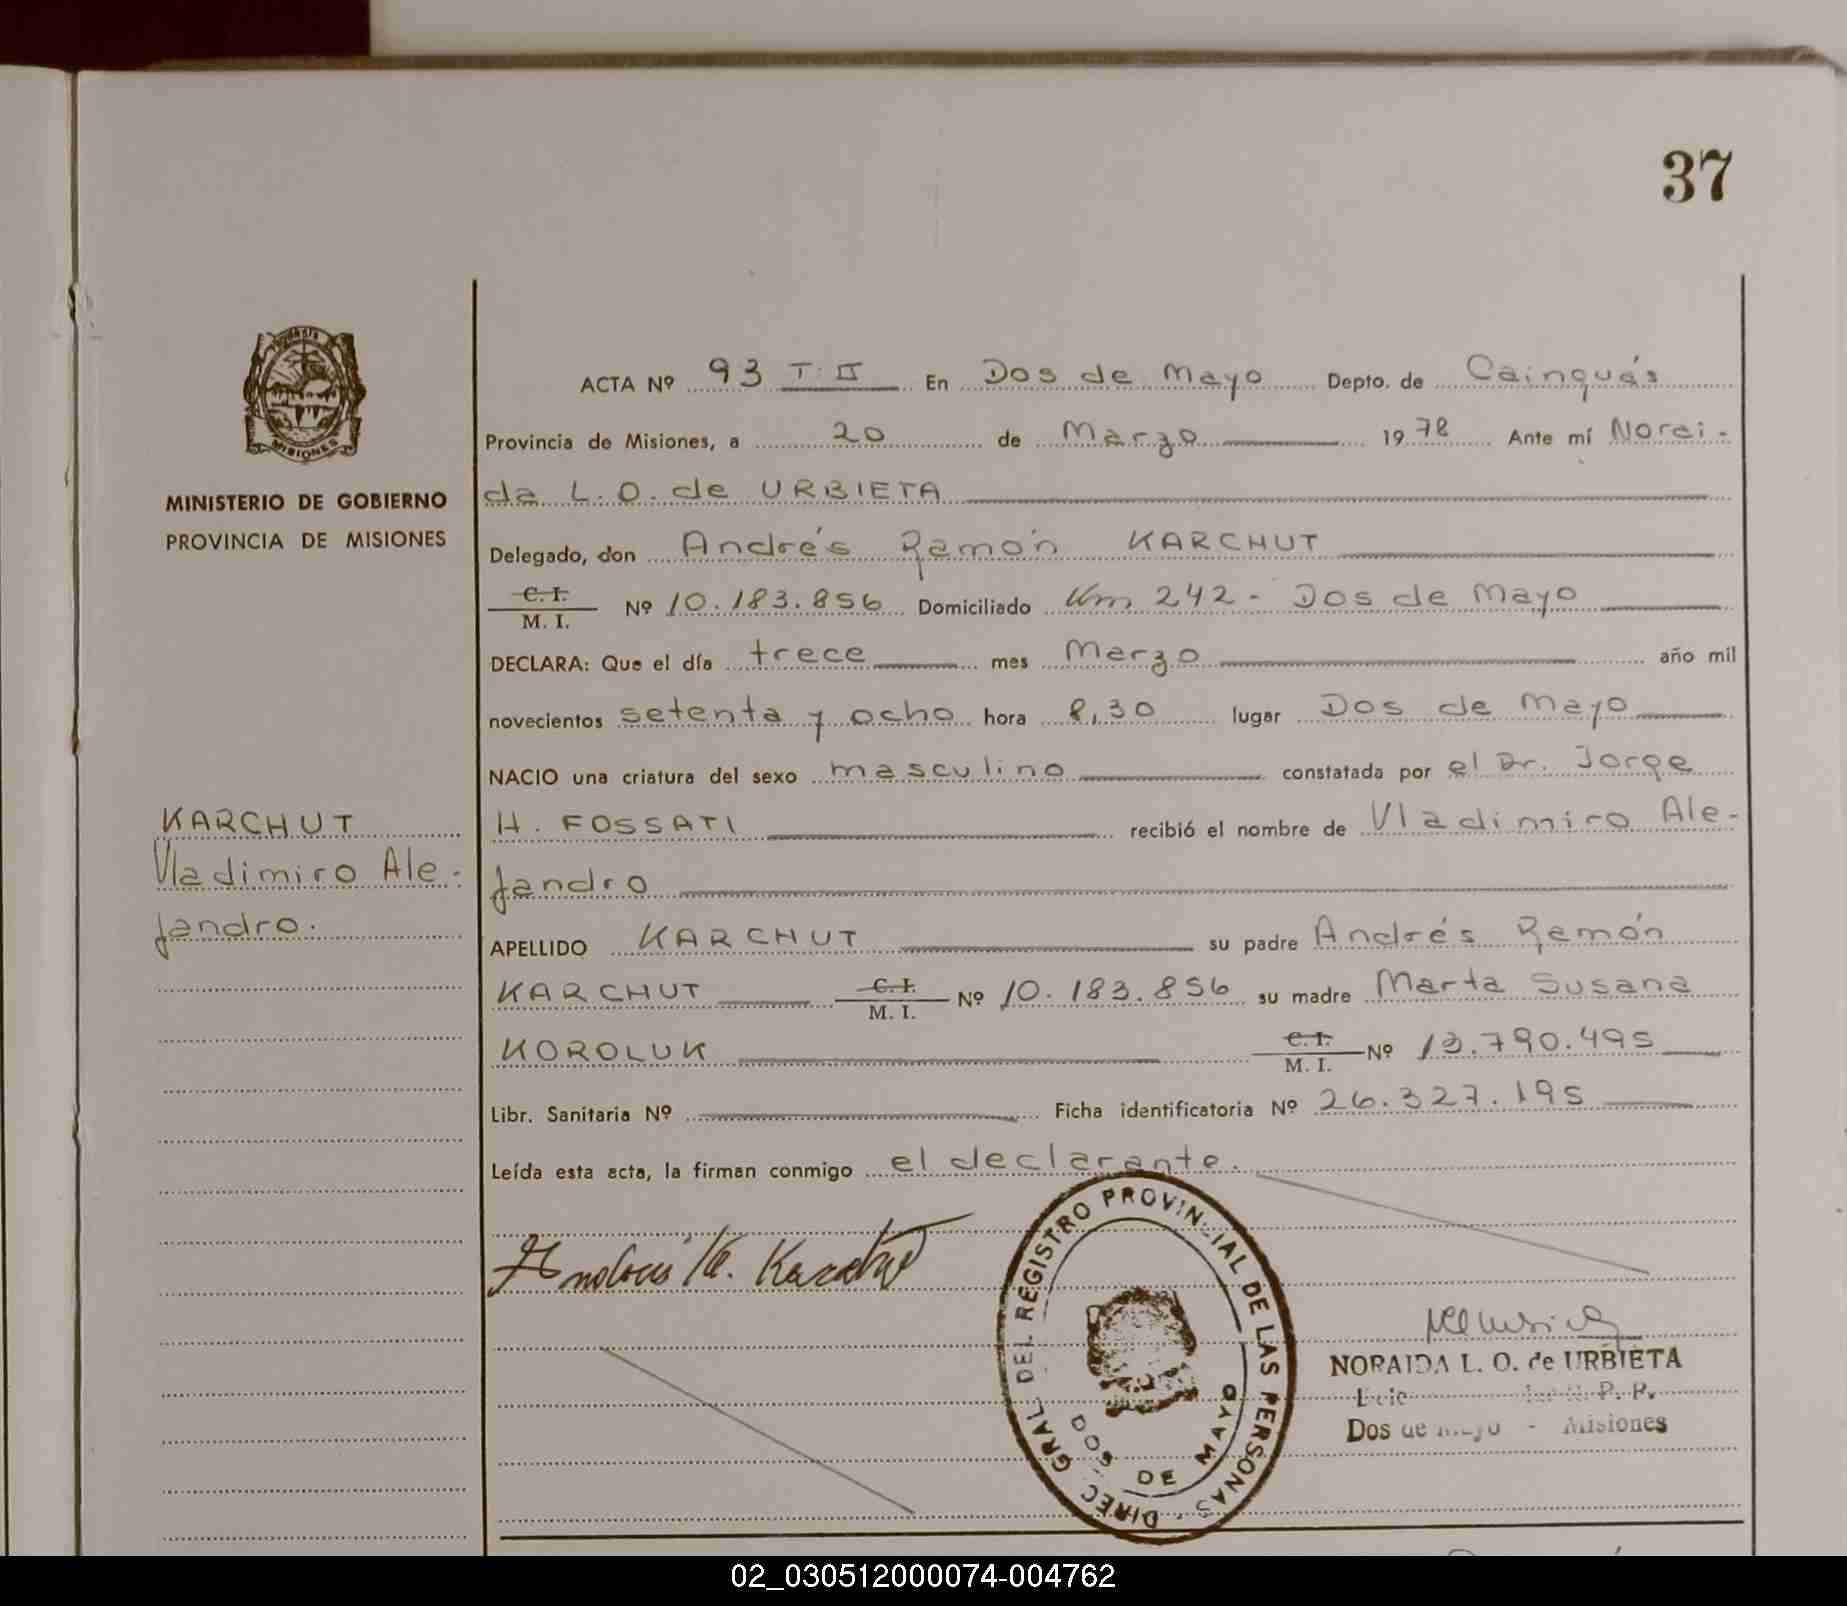 37
MISIONES
MINISTERIO DE GOBIERNO
PROVINCIA DE MISIONES
KARCHUT
Vladimiro Ale-
jandro.
ACTA Nº 93 T: II En Dos de Mayo Depto. de Cainguás
Provincia de Misiones, a 20 de Marzo 1978 Ante mí Norai-
da L. O. de URBIETA
Delegado, don Andrés Ramón KARCHUT
C. I.
M. I. Nº 10.183.856 Domiciliado Km 242 - Dos de Mayo
DECLARA: Que el día trece mes Marzo año mil
novecientos setenta y ocho hora 8,30 lugar Dos de Mayo
NACIO una criatura del sexo masculino constatada por el Dr. Jorge
H. FOSSATI recibió el nombre de Vladimiro Ale-
jandro
APELLIDO KARCHUT su padre Andrés Ramón
KARCHUT C. I. M. I. Nº 10.183.856 su madre Marta Susana
KOROLUK C. I. M. I. Nº 13.790.495
Libr. Sanitaria Nº Ficha identificatoria Nº 26.327.195
Leída esta acta, la firman conmigo el declarante.
DIREC. GRAL. DEL REGISTRO PROVINCIAL DE LAS PERSONAS
DOS DE MAYO
NORAIDA L. O. de URBIETA
Dos de Mayo - Misiones
02_030512000074-004762